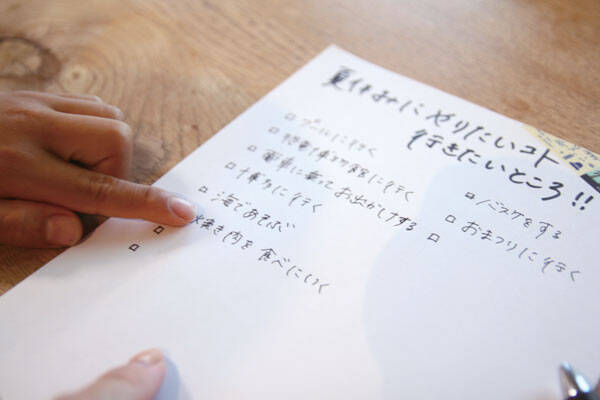 夏休みにやりたいコト
行きたいところ!!
□ プールに行く
□ 博物館に行く
□ 電車に乗ってお出かけする
□ に行く
□ 海であそぶ
□ 焼き肉を食べにいく
□
□ バスケをする
□ おまつりに行く
□